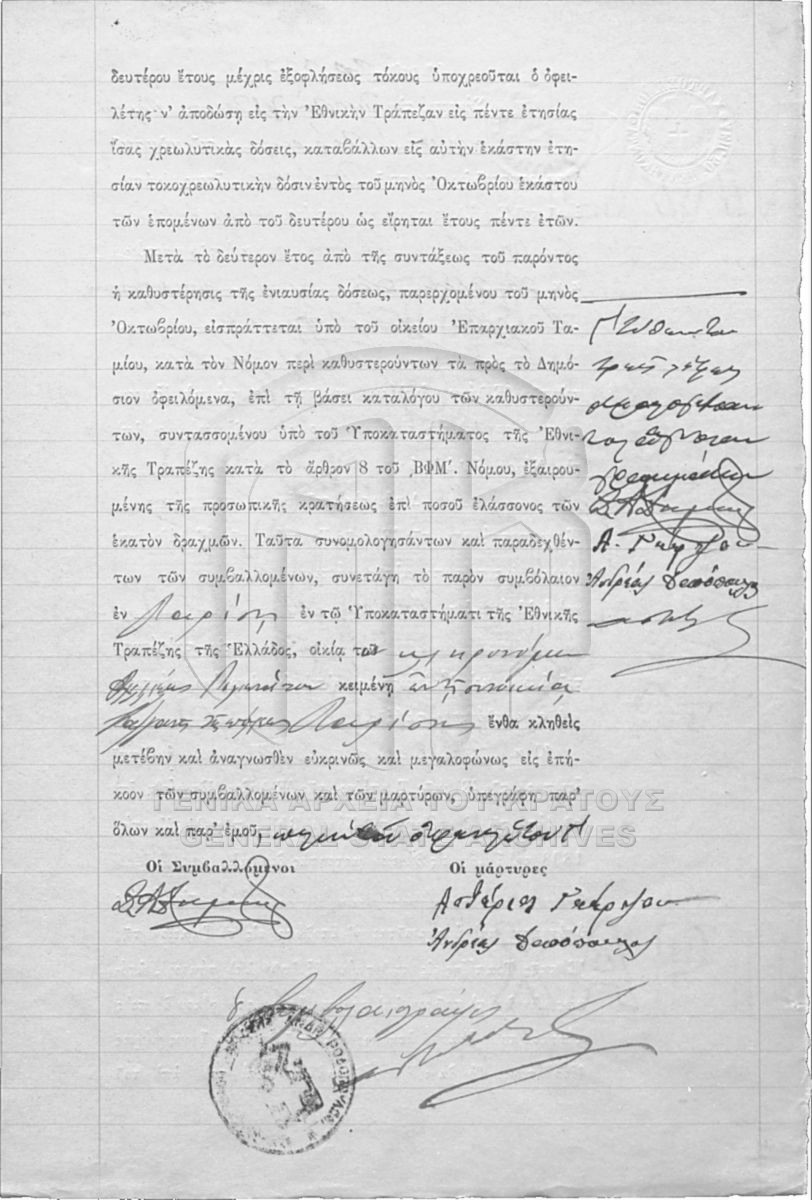 δευτέρου ἔτους μέχρις ἐξοφλήσεως τόκους ὑποχρεοῦται ὁ ὀφει-
λέτης ν' ἀποδώσῃ εἰς τὴν Ἐθνικὴν Τράπεζαν εἰς πέντε ἐτησίας
ἴσας χρεωλυτικὰς δόσεις, καταβάλλων εἰς αὐτὴν ἑκάστην ἐτη-
σίαν τοκοχρεωλυτικὴν δόσιν ἐντὸς τοῦ μηνὸς Ὀκτωβρίου ἑκάστου
τῶν ἑπομένων ἀπὸ τοῦ δευτέρου ὡς εἴρηται ἔτους πέντε ἐτῶν.
Μετὰ τὸ δεύτερον ἔτος ἀπὸ τῆς συντάξεως τοῦ παρόντος
ἡ καθυστέρησις τῆς ἐνιαυσίας δόσεως, παρερχομένου τοῦ μηνὸς
Ὀκτωβρίου, εἰσπράττεται ὑπὸ τοῦ οἰκείου Ἐπαρχιακοῦ Τα-
μίου, κατὰ τὸν Νόμον περὶ καθυστερούντων τὰ πρὸς τὸ Δημό-
σιον ὀφειλόμενα, ἐπὶ τῇ βάσει καταλόγου τῶν καθυστερούν-
των, συντασσομένου ὑπὸ τοῦ Ὑποκαταστήματος τῆς Ἐθνι-
κῆς Τραπέζης κατὰ τὸ ἄρθρον 8 τοῦ ͵ΒΦΜ΄. Νόμου, ἐξαιρου-
μένης τῆς προσωπικῆς κρατήσεως ἐπὶ ποσοῦ ἐλάσσονος τῶν
ἑκατὸν δραχμῶν. Ταῦτα συνομολογησάντων καὶ παραδεχθέν-
των τῶν συμβαλλομένων, συνετάγη τὸ παρὸν συμβόλαιον
ἐν Λαρίσῃ ἐν τῷ Ὑποκαταστήματι τῆς Ἐθνικῆς
Τραπέζης τῆς Ἑλλάδος, οἰκίᾳ τῶν κληρονόμων
κειμένῃ συνοικίαν
Λαρίσης ἔνθα κληθεὶς
μετέβην καὶ ἀναγνωσθὲν εὐκρινῶς καὶ μεγαλοφώνως εἰς ἐπή-
κοον τῶν συμβαλλομένων καὶ τῶν μαρτύρων, ὑπεγράφη παρ'
ὅλων καὶ παρ' ἐμοῦ,
Οἱ Συμβαλλόμενοι
Οἱ μάρτυρες
Ἀστέριος
Ἀνδρέας
ὁ Συμβολαιογράφος
τρεῖς λέξεις
Α.
Ἀνδρέας
ΓΕΝΙΚΑ ΑΡΧΕΙΑ ΤΟΥ ΚΡΑΤΟΥΣ
GENERAL STATE ARCHIVES